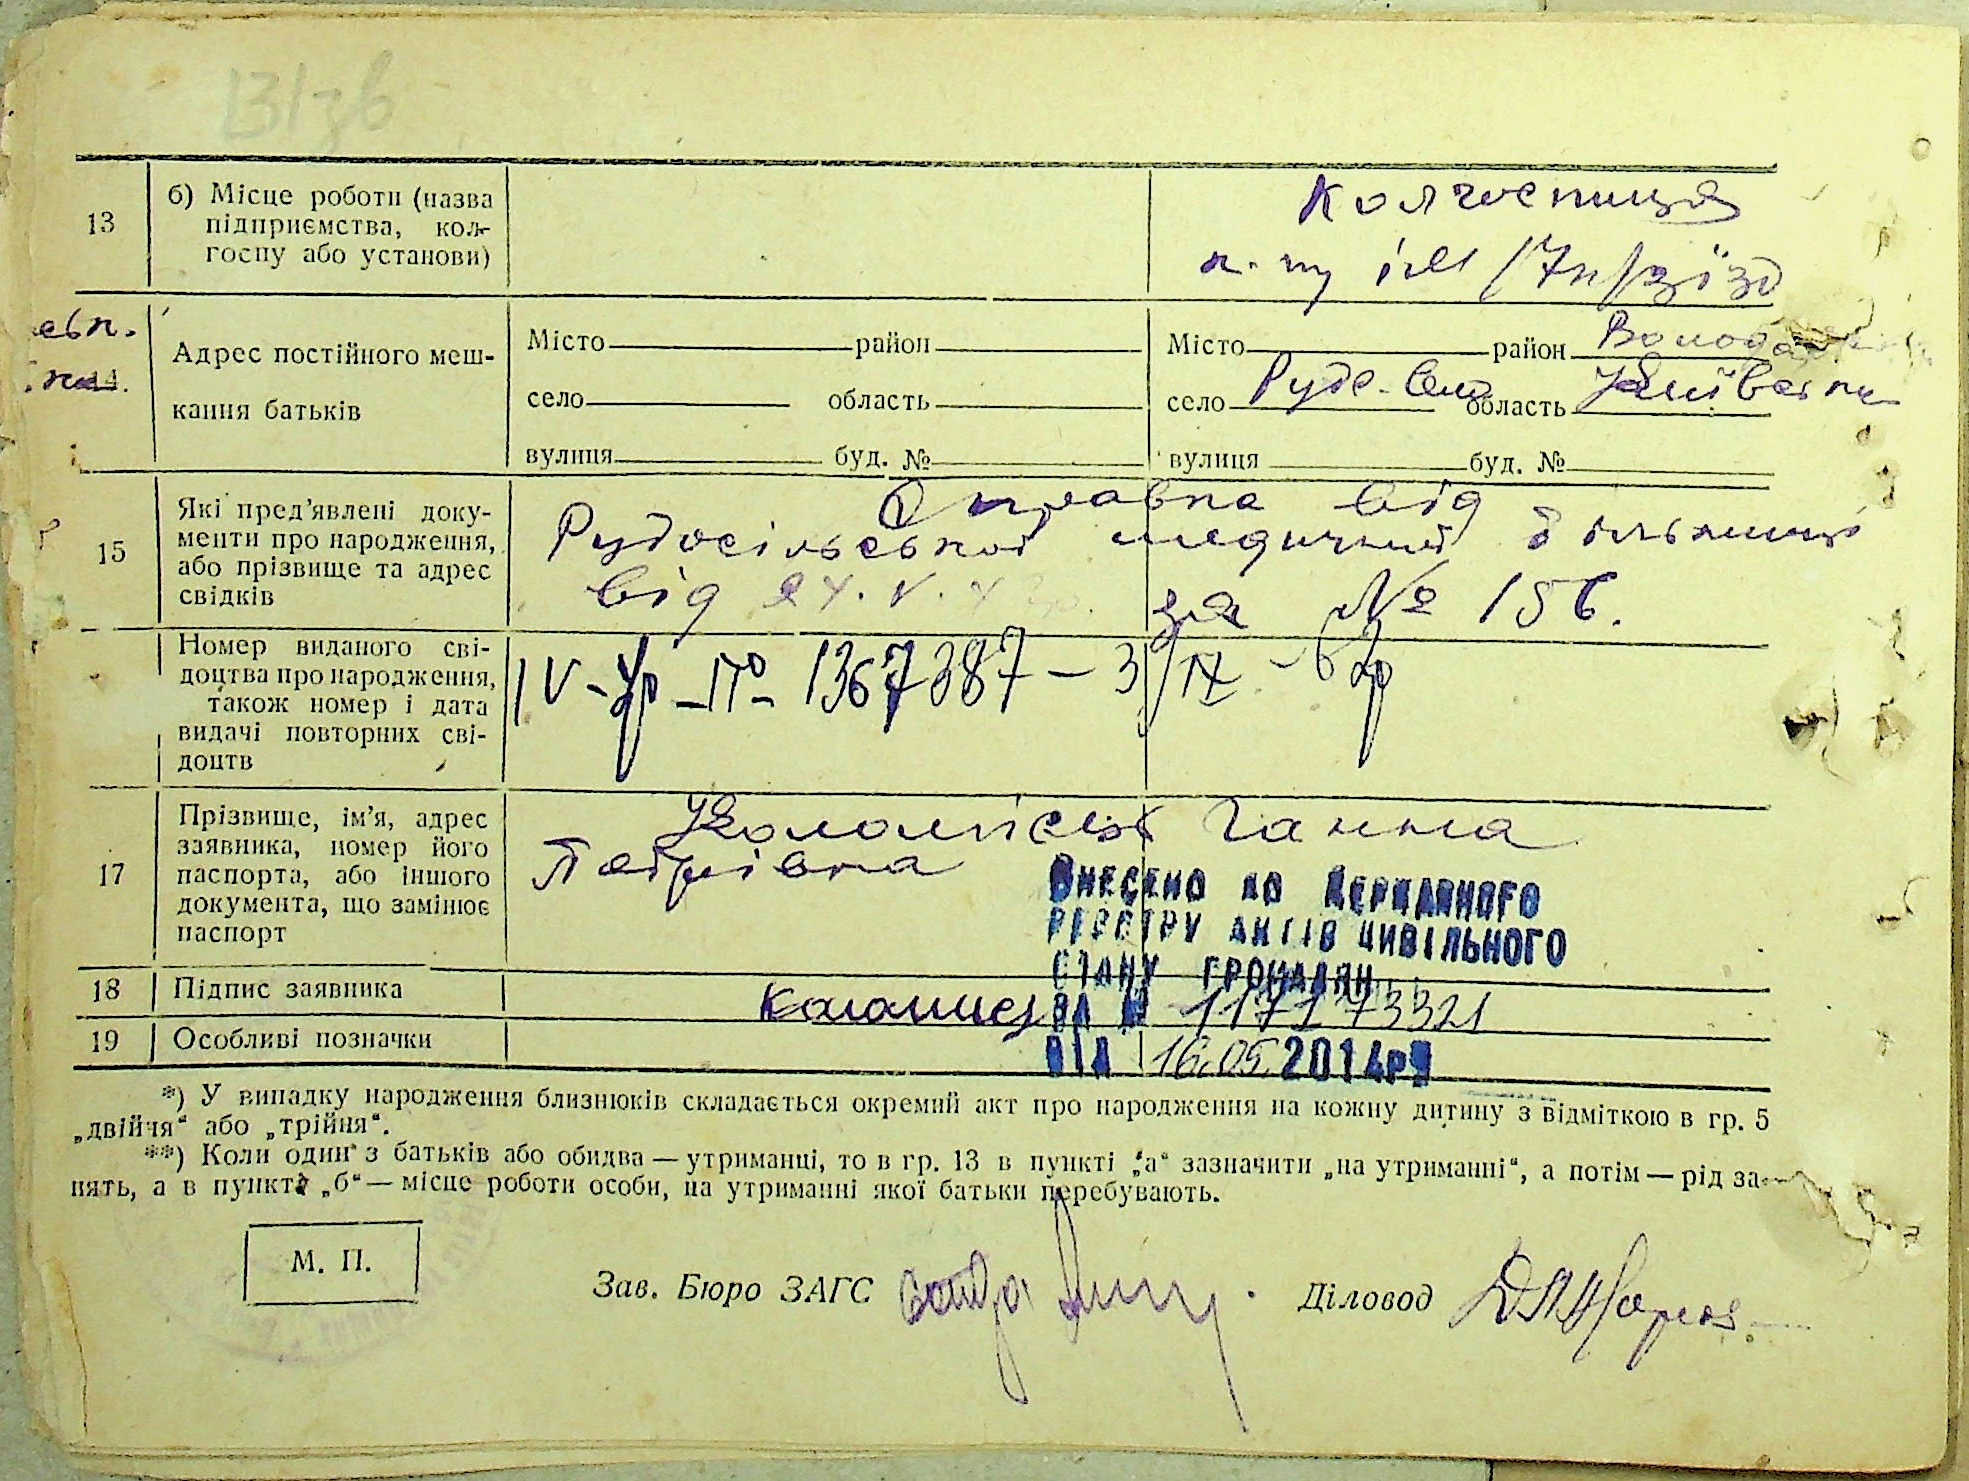 131зв
13
б) Місце роботи (назва
підприємства, кол-
госпу або установи)
Колгоспниця
к-пу ім 17 п/з'їзд
Адрес постійного меш-
кання батьків
Місто район
село область
вулиця буд. №
Місто район Волода
село Руде-Село область Київськ
вулиця буд. №
15
Які пред'явлені доку-
менти про народження,
або прізвище та адрес
свідків
Справка від
Рудосільської медичної дільниці
від 24.V.4 за № 156.
Номер виданого сві-
доцтва про народження,
також номер і дата
видачі повторних сві-
доцтв
IV-Ур-№ 1367387 - 3/IX -
17
Прізвище, ім'я, адрес
заявника, номер його
паспорта, або іншого
документа, що замінює
паспорт
Коломієць Ганна
Петрівна
ВНЕСЕНО ДО ДЕРЖАВНОГО
РЕЄСТРУ АКТІВ ЦИВІЛЬНОГО
СТАНУ ГРОМАДЯН
ЗА № 117173321
ВІД 16.05.2014р
18
Підпис заявника
Коломиец
19
Особливі позначки
*) У випадку народження близнюків складається окремий акт про народження на кожну дитину з відміткою в гр. 5
„двійня“ або „трійня“.
**) Коли один з батьків або обидва — утриманці, то в гр. 13 в пункті „а“ зазначити „на утриманні“, а потім — рід за-
нять, а в пункті „б“ — місце роботи особи, на утриманні якої батьки перебувають.
М. П.
Зав. Бюро ЗАГС
Діловод